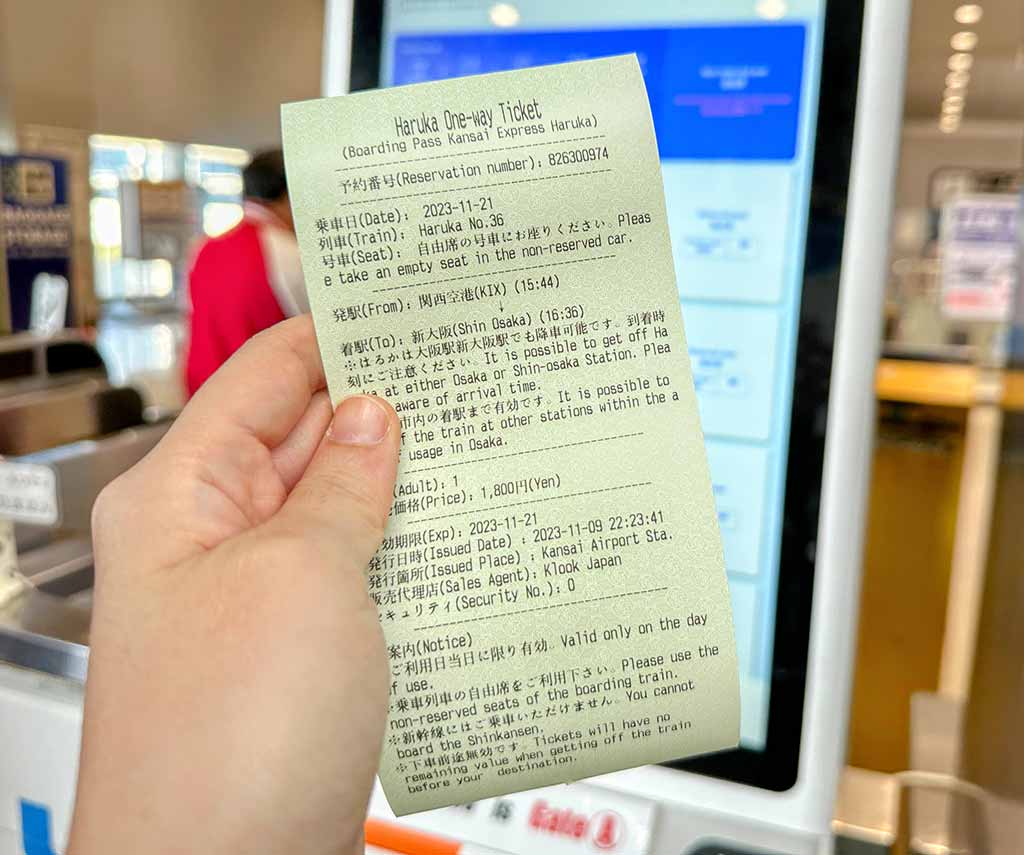 Haruka One-way Ticket
(Boarding Pass Kansai Express Haruka)
予約番号(Reservation number): 826300974
乗車日(Date): 2023-11-21
列車(Train): Haruka No.36
号車(Seat): 自由席の号車にお座りください。Pleas
e take an empty seat in the non-reserved car.
発駅(From): 関西空港(KIX) (15:44)
↓
着駅(To): 新大阪(Shin Osaka) (16:36)
※はるかは大阪駅新大阪駅でも降車可能です。到着時
刻にご注意ください。It is possible to get off Ha
ka at either Osaka or Shin-osaka Station. Plea
aware of arrival time.
市内の着駅まで有効です。It is possible to
f the train at other stations within the a
f usage in Osaka.
(Adult): 1
価格(Price): 1,800円(Yen)
効期限(Exp): 2023-11-21
発行日時(Issued Date) : 2023-11-09 22:23:41
発行箇所(Issued Place) : Kansai Airport Sta.
販売代理店(Sales Agent): Klook Japan
セキュリティ(Security No.): 0
案内(Notice)
ご利用日当日に限り有効。Valid only on the day
f use.
※乗車列車の自由席をご利用下さい。Please use the
non-reserved seats of the boarding train.
※新幹線にはご乗車いただけません。You cannot
board the Shinkansen.
※下車前途無効です。Tickets will have no
remaining value when getting off the train
before your destination.
is Gate
BAGGAGE
STORAGE